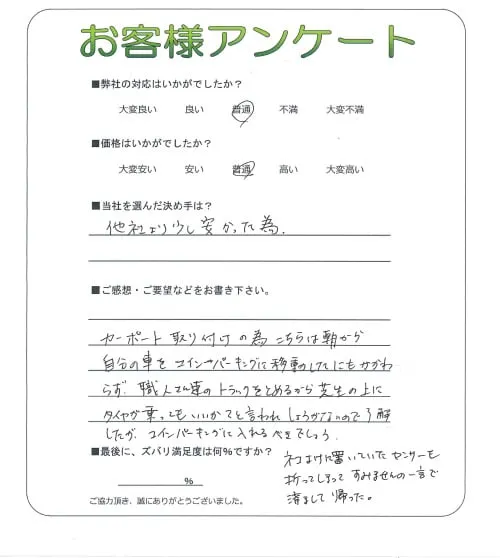 お客様アンケート
■弊社の対応はいかがでしたか？
大変良い 良い 普通 不満 大変不満
■価格はいかがでしたか？
大変安い 安い 普通 高い 大変高い
■当社を選んだ決め手は？
他社より少し安かった為.
■ご感想・ご要望などをお書き下さい。
カーポート取り付けの為こちらは朝から
自分の車をコインパーキングに移動したにもかかわ
らず、職人さん達のトラックをとめるから芝生の上に
タイヤが乗ってもいいかと言われしょうがないので了解
したが、コインパーキングに入れるべきでしょう.
■最後に、ズバリ満足度は何%ですか？
%
ネコよけに置いていたセンサーを
折ってしまってすみませんの一言で
済まして帰った。
ご協力頂き、誠にありがとうございました。